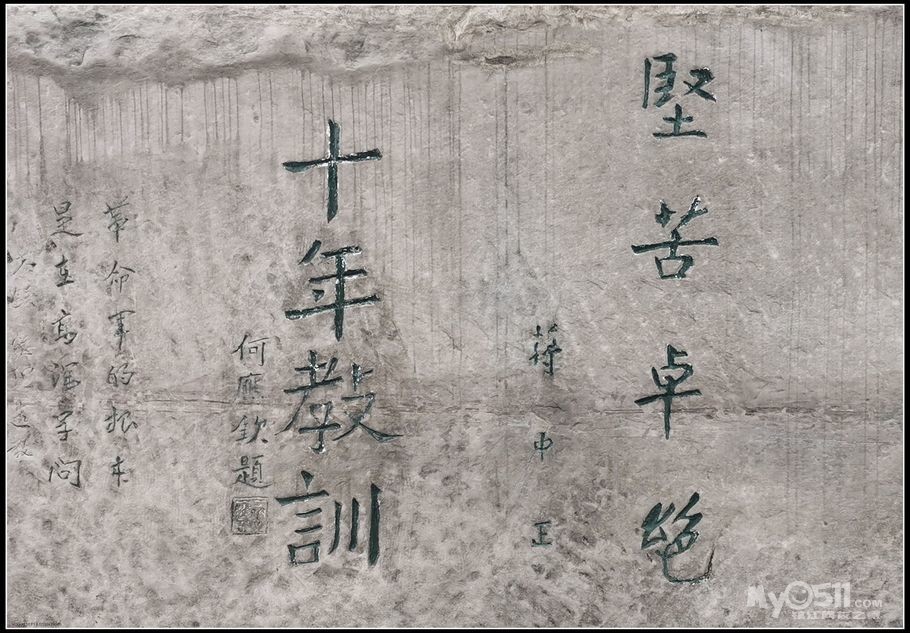 堅苦卓絕
蔣中正
十年教訓
何應欽題
革命軍的根本
是在高深學問
MyO511.com